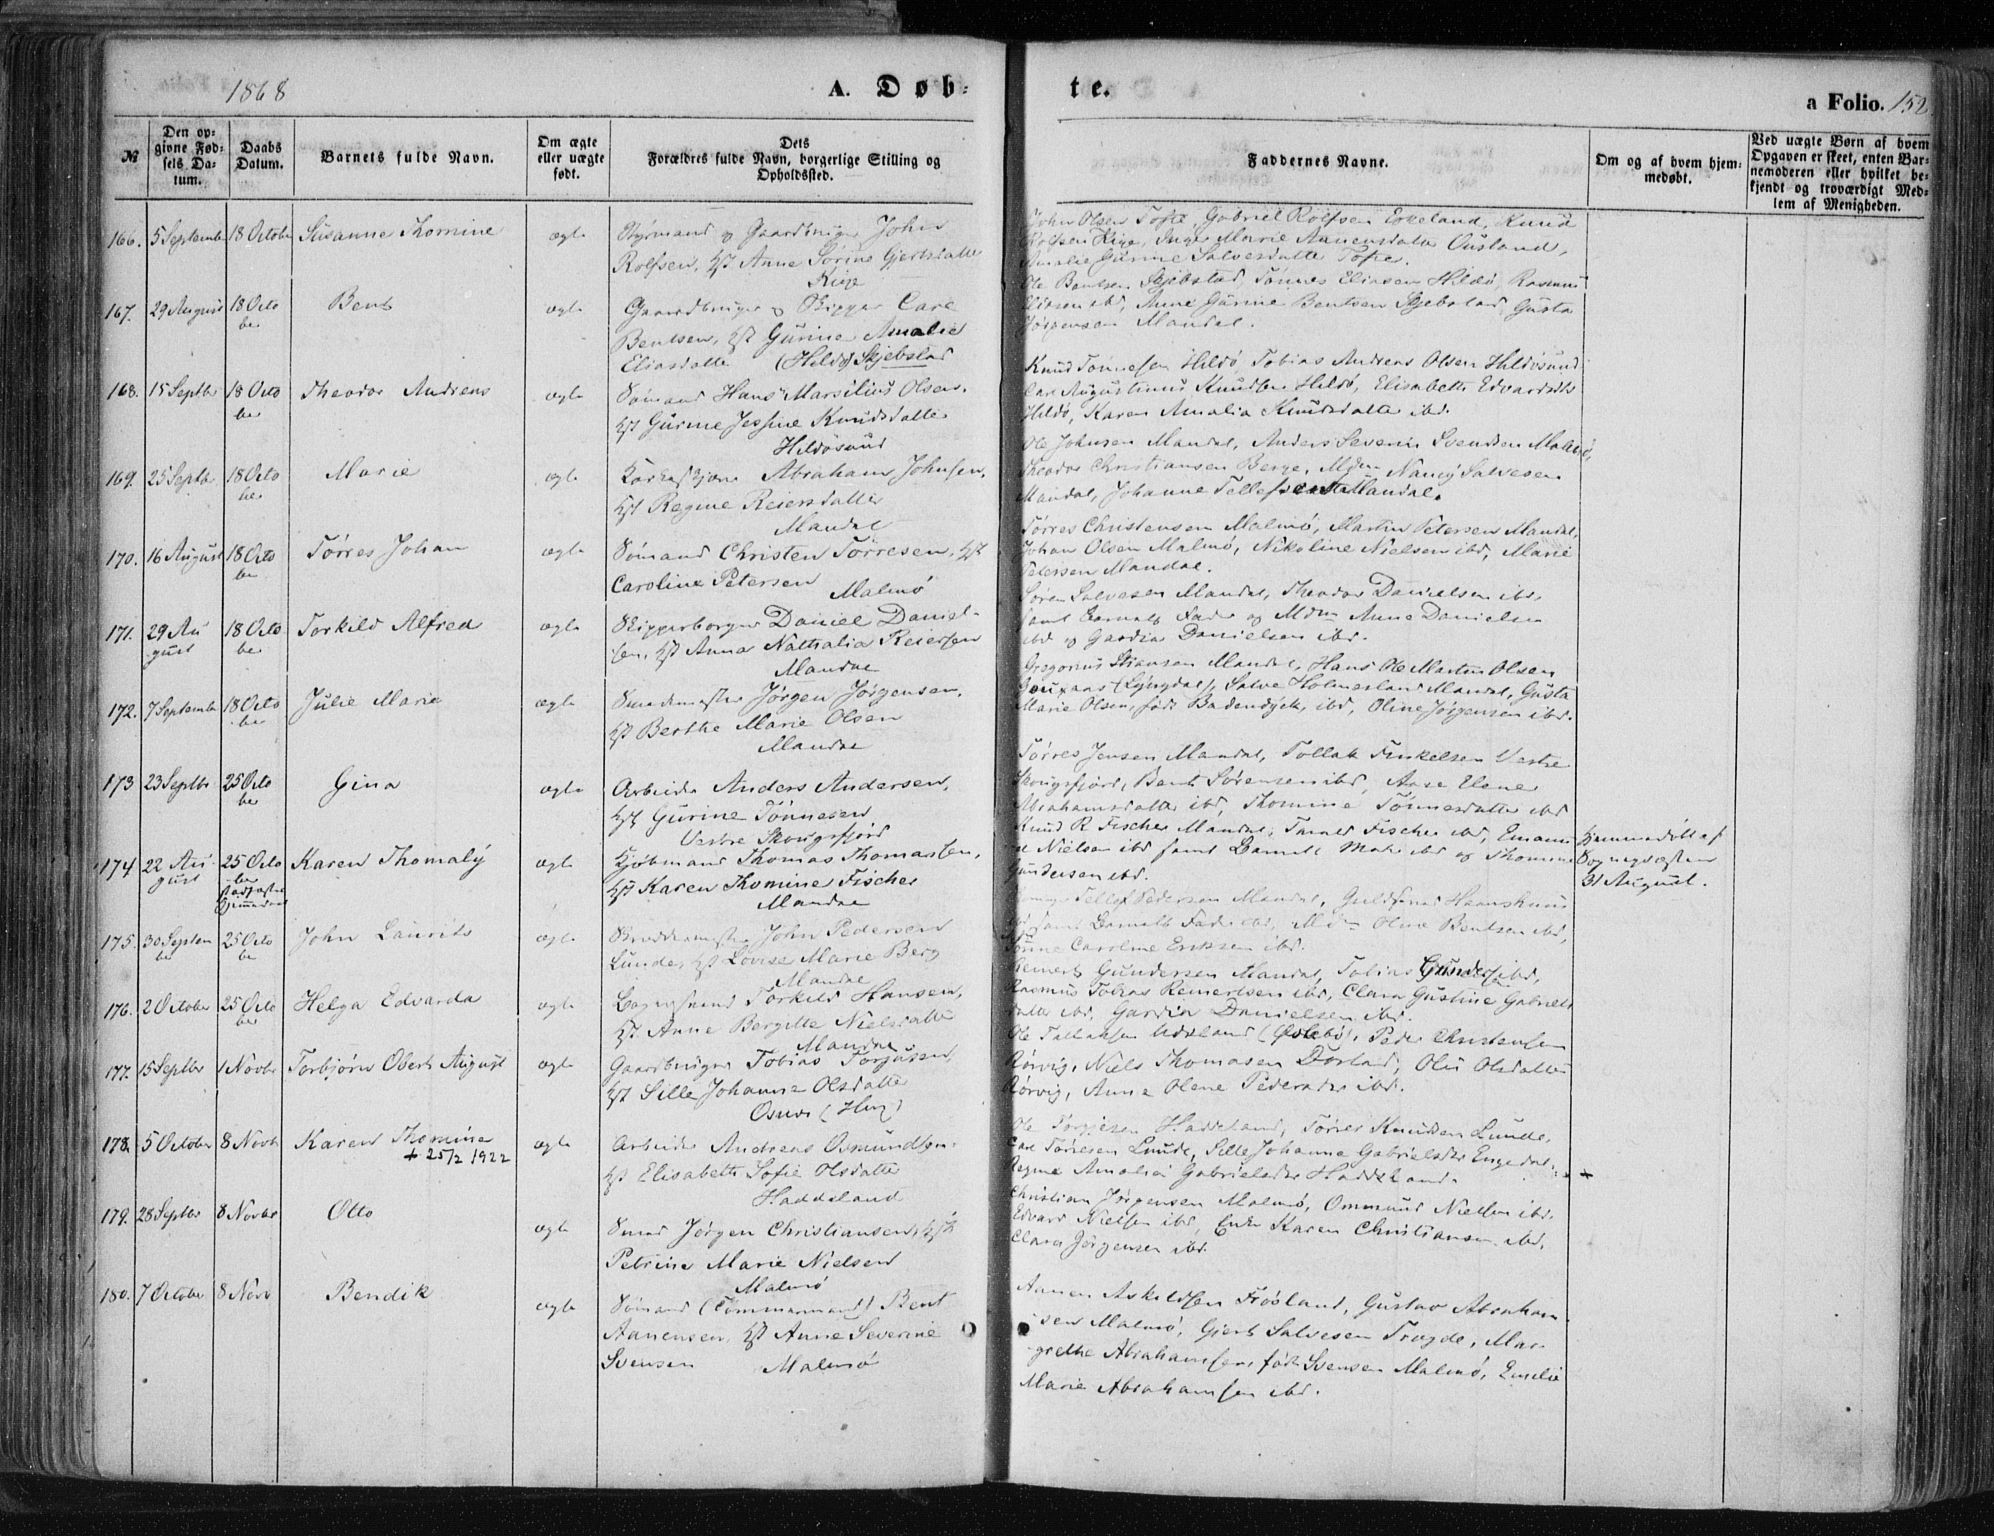 1868
A. Døb=
te.
a Folio. 152
№
Den op=
givne Fød=
sels Da=
tum.
Daabs
Datum.
Barnets fulde Navn.
Om ægte
eller uægte
født.
Dets
Forældres fulde Navn, borgerlige Stilling og
Opholdssted.
Faddernes Navne.
Om og af hvem hjem=
medøbt.
Ved uægte Børn af hvem
Opgaven er skeet, enten Bar=
nemoderen eller hvilket be=
kjendt og troværdigt Med=
lem af Menigheden.
166. 5 September 18 Octobr Susanne Thomine ægte Styrmand og Gaardbruger John
Rolfsen, Hst Anne Sørine Gjertsdatter
Kige
John Olsen Tofte, Gabriel Rolfsen Eskeland, Knud
Rolfsen Kige, Inger Marie Aanensdatter Ousland,
Amalie Gurine Salvesdatter Tofte.
167. 29 August 18 Octo
be Bent ægte Gaardbruger og Skipper Carl
Bentsen, Hst Gurine Amalie
Eliasdatter (Hildø) Skjebstad
Ole Bentsen Skjebstad, Tønnes Eliasen Hildø, Rasmus
Eliasen ibd, Anne Gurine Bentsen Skjebstad, Gusta
Jørgensen Mandal.
168. 15 Septbr 18 Octo
be Theodor Andreas ægte Sømand Hans Marsilius Olsen,
Hst Gurine Jessine Knudsdatter
Hildøsund
Knud Tønnesen Hildø, Tobias Andreas Olsen Hildøsund
Carl Augustinus Knudsen Hildø, Elisabeth Edvardsdtr
Hildø, Karen Amalia Knudsdatter ibd.
169. 25 Septbr 18 Octo
be Marie ægte Abraham Johnsen,
Hst Regine Reiersdatter
Mandal
Ole Johnsen Mandal, Anders Severin Svendsen Malmø,
Theodor Christiansen Berge, Mdm Nancy Salvesen
Mandal, Johanne Mandal.
170. 16 August 18 Octo
be Tørres Johan ægte Sømand Christen Tørresen, Hst
Caroline Petersen
Malmø
Tørres Christensen Malmø, Martin Petersen Mandal,
Johan Olsen Malmø, Nikoline Nielsen ibd, Marie
Petersen Mandal.
171. 29 Au
gust 18 Octo
be Torkild Alfred ægte Skipperborger Daniel Daniel-
sen, Hst Anna Nathalia Reiersen
Mandal
Søren Salvesen Mandal, Theodor Danielsen ibd,
samt Barnets Fader og Mdm Anne Danielsen
ibd og Gardia Danielsen ibd.
172. 7 Septembe 18 Octo
be Julie Marie ægte Smedemester Jørgen Jørgensen,
Hst Berthe Marie Olsen
Mandal
Gregorius Stiansen Mandal, Hans Ole Martin Olsen
(Lyngdal), Salve Holmesland Mandal, Gusta
Marie Olsen, født ibd, Oline Jørgensen ibd.
173 23 Septbr 25 Octo
be Gina ægte Arbeider Anders Andersen,
Hst Gurine Tønnesen
Vestre Skougsfjord
Tørres Jensen Mandal, Tollak Finkelsen Vestre
Skougsfjord, Bent Sørensen ibd, Aase Elene
Abrahamsdatter ibd, Thomine Tønnesdatter ibd
174 22 Au-
gust 25 Octo
be
stadfæstet
Hjemmedaab Karen Thomaly ægte Kjøbmand Thomas Thomassen,
Hst Karen Thomine Fischer
Mandal
Knud R Fischer Mandal, Fischer ibd, Emanu
el Nielsen ibd samt Barnets Moder ibd og Thomine
Gundersen ibd.
Hjemmedøbt af
Sognepræsten
31 August.
175. 30 Septem
be 25 Octo
be John Laurits ægte John Pedersen
Lunde, Hst Lovise Marie Berg
Mandal
Tellef Pedersen Mandal, Guldsmed
ibd samt Barnets Fader ibd, Mdm Oline Bentsen ibd,
Caroline Eriksen ibd.
176. 2 October 25 Octo
be Helga Edvarda ægte Torkild Hansen,
Hst Anne Bergitte Nielsdatter
Mandal
Reinert Gundersen Mandal, Tobias Gundersen ibd,
Rasmus Tobias Reinertsen ibd, Clara Gustine Gabriels
datter ibd, Gardia Danielsen ibd.
177. 15 Septbr 1 Novbr Torbjørn Obert August ægte Gaardbruger Tobias Torjusen,
Hst Sille Johanne Olsdatter
Ole Tallaksen Udsland (Øslebø), Peder Christensen
Rørvig, Niels Thomasen Dorlad, Olu Olsdatter
Rørvig, Anne Olene Pedersdtr ibd.
178. 5 October 8 Novb Karen Thomine
+ 25/2 1922 ægte Arbeider Andreas Osmundsen
Hst Elisabeth Sofie Olsdatter
Haddeland
Ole Torgjesen Haddeland, Tørres Knudsen Lunde,
Carl Tørresen Lunde, Sille Johanne Gabrielsdtr Engedal
Regine Amalia Gabrielsdtr Haddeland.
179. 28 Septbr 8 Novbr Otto ægte Smed Jørgen Christiansen, Hst
Petrine Marie Nielsen
Malmø
Christian Jørgensen Malmø, Ommund Nielsen ibd.
Edvard Nielsen ibd, Enke Karen Christiansen ibd.
Clara Jørgensen ibd.
180. 7 October 8 Novb Bendik ægte Sømand (Tømmermand) Bent
Aanensen, Hst Anne Severine
Svensen Malmø
Aanen Askildsen Frøsland, Gustav Abraham
sen Malmø, Gjert Salvesen Trygde, Mar-
grethe Abrahamsen, født Svensen Malmø, Emilie
Marie Abrahamsen ibd.